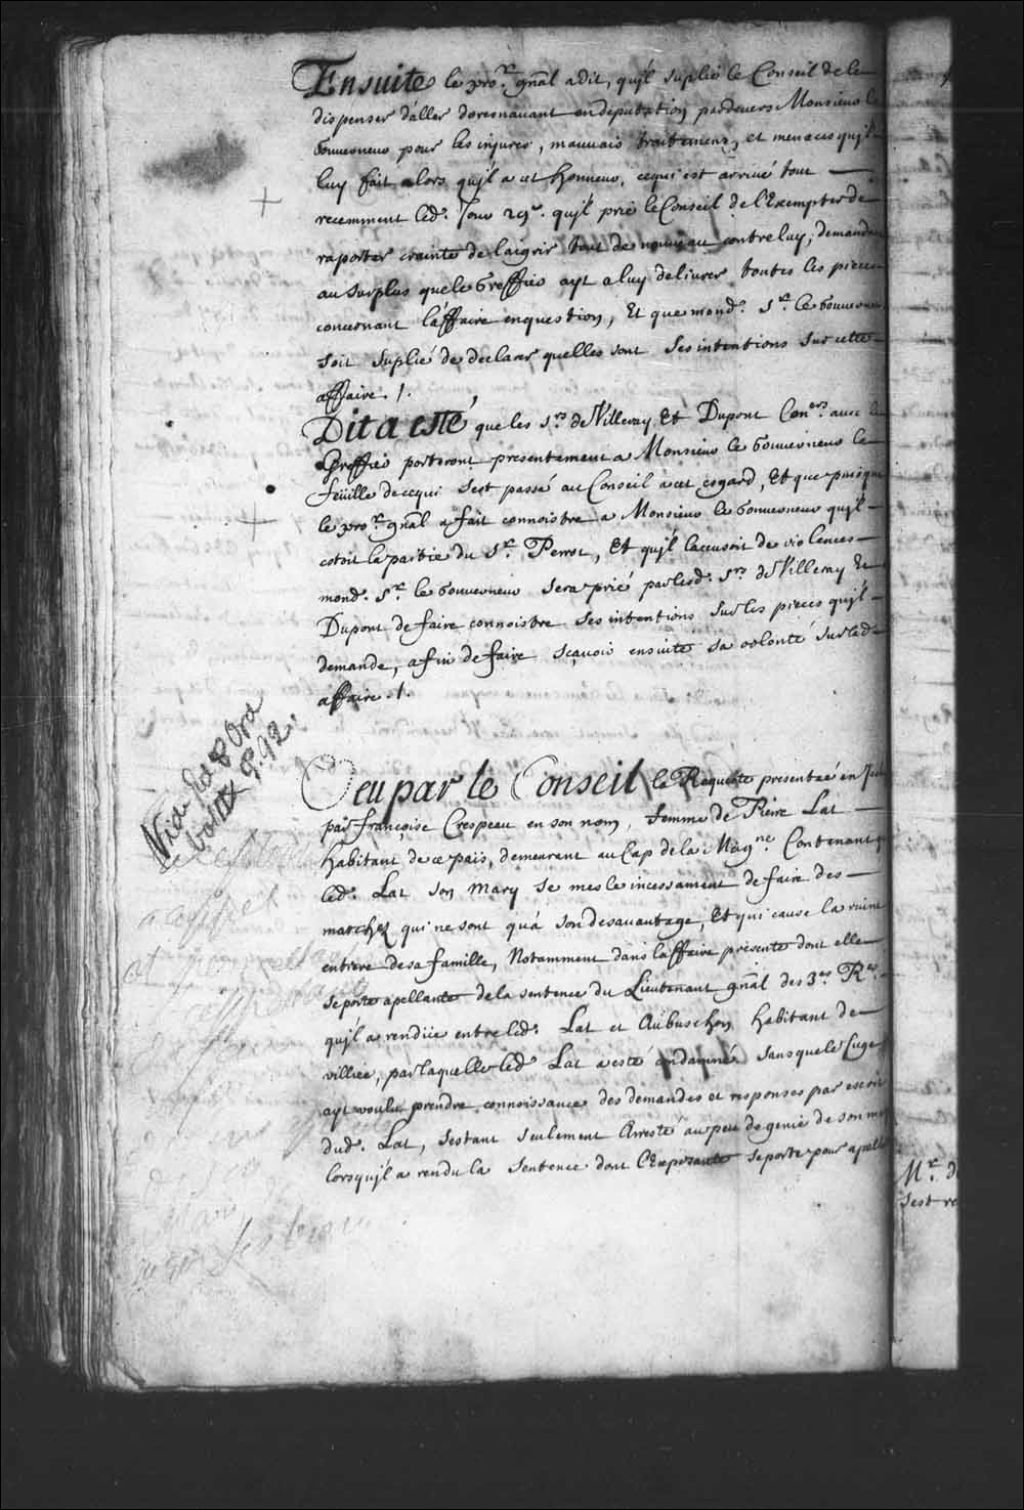 Ensuite le pror. gnãl a dit, qu'il suplie le Conseil de le
dispenser d'aller doresnavant en deputation pardevers Monsieur le
Gouverneur pour les injures, mauvais traitemens, et menaces qu'il
luy fait alors qu'il a cet honneur, ce qui est arrivé tout
recemment led. Jour 29e. qu'il prie le Conseil de l'Exempter de
raporter crainte de l'aigrir tout de nouveau contre luy, demande
au surplus que le Greffier ayt a luy delivrer toutes les pieces
concernant l'affaire en question, Et que mond. Sr. le Gouverneur
soit suplié de declarer quelles sont ses intentions sur cette
affaire ./.
Dit a esté que les Srs. de Villeray Et Dupont Coners. avec le
Greffier porteront presentement a Monsieur le Gouverneur la
feüille de ce qui s'est passé au Conseil a cet esgard, Et que puisque
le pror. gnãl a fait connoistre a Monsieur le Gouverneur qu'il
estoit la partie du Sr. Perrot, Et qu'il l'accusoit de violences
mond. Sr. le Gouverneur sera prié par lesd. Srs. de Villeray Et
Dupont de faire connoistre ses intentions sur les pieces qu'il
demande, afin de faire sçavoir ensuite sa volonté sur lad.
affaire ./.
Vide Ed & Ord
Vol II p. 92.
Veu par le Conseil la Requeste presentée en
par françoise Crespeau en son nom, femme de Pierre Lat
habitant de ce païs, demeurant au Cap de la Magne. Contenant q
led. Lat son mary se mesle incessament de faire des
marchez qui ne sont qu'à son desavantage, Et qui cause la ruine
entiere de sa famille, Notamment dans l'affaire presente dont elle
se porte apellante de la sentence du Lieutenant gnãl des 3es. Res.
qu'il a rendüe entre led. Lat et Aubuschon habitant de
villiee, par laquelle led. Lat a esté condamné sans que le Juge
ayt voulu prendre connoissance des demandes et responses par escrit
dud. Lat, s'estant seulement Arresté au peu de genie de son m
lorsqu'il a rendu la sentence dont l'Exposante se porte pour apell
Mr. d
s'est re